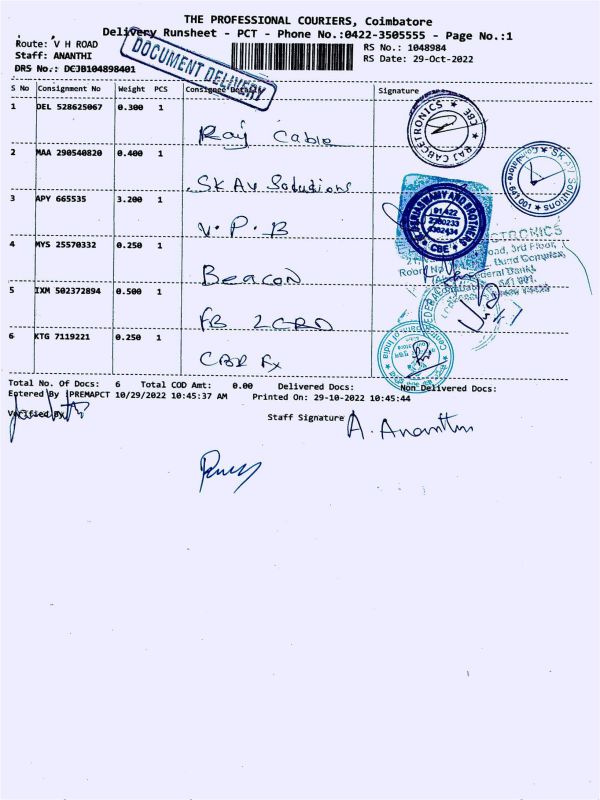 THE PROFESSIONAL COURIERS, Coimbatore
Delivery Runsheet - PCT - Phone No.:0422-3505555 - Page No.:1
Route: V H ROAD
RS No.: 1048984
Staff: ANANTHI
RS Date: 29-Oct-2022
DRS No.: DCJB104898401
DOCUMENT DELIVERY
S No Consignment No Weight PCS Consignee Details Signature
1 DEL 528625067 0.300 1
Raj Cable
RAJ CABCETRONICS ★ CBE ★
2 MAA 290540820 0.400 1
SK AV Solutions
★ SK AV Solutions ★ Coimbatore 641 001
3 APY 665535 3.200 1
V. P. B
★ CBE ★
4 MYS 25570332 0.250 1
Beacon
Road, 3rd Floor,
Room No
Federal Bank,
5 IXM 502372894 0.500 1
FB LCRD
6 KTG 7119221 0.250 1
Total No. Of Docs: 6 Total COD Amt: 0.00 Delivered Docs: Non Delivered Docs:
Entered By :PREMAPCT 10/29/2022 10:45:37 AM Printed On: 29-10-2022 10:45:44
Verified By
Staff Signature
A. Ananthi